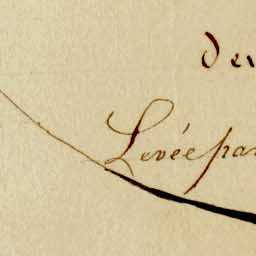 de
Levée par